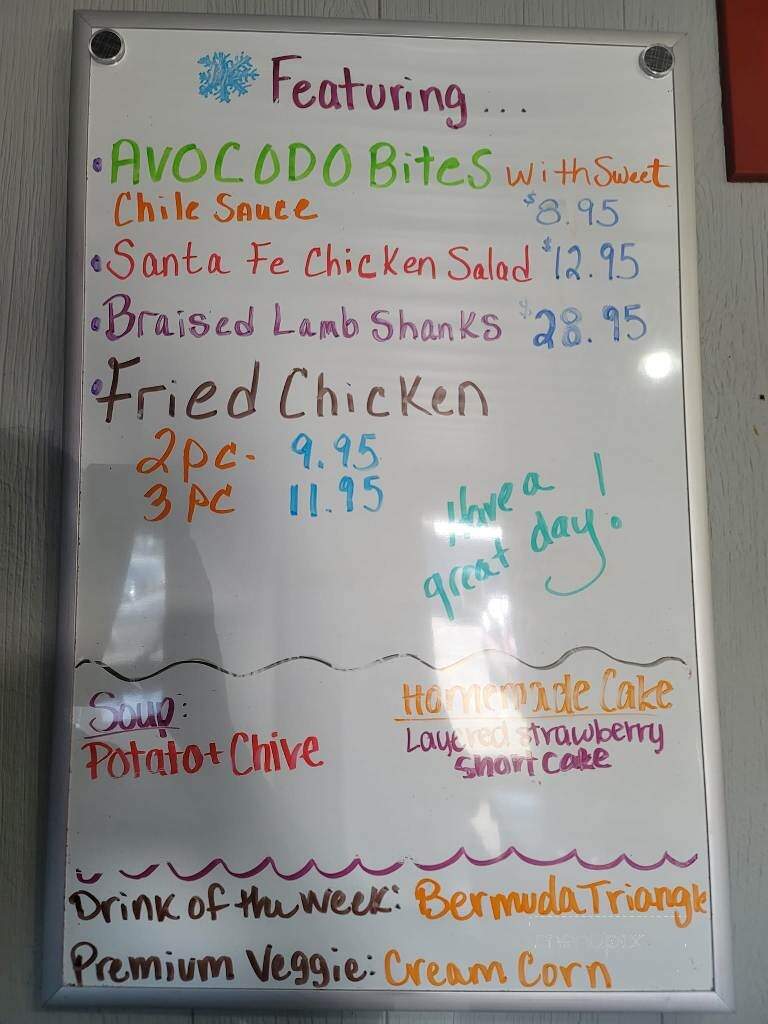 Featuring...
• AVOCODO Bites with Sweet
Chile Sauce $8.95
• Santa Fe Chicken Salad $12.95
• Braised Lamb Shanks $28.95
• Fried Chicken
2 pc. 9.95
3 pc 11.95
Have a
great day!
Soup:
Potato + Chive
Homemade Cake
Layered strawberry
short cake
Drink of the week: Bermuda Triangle
menupix
Premium Veggie: Cream Corn